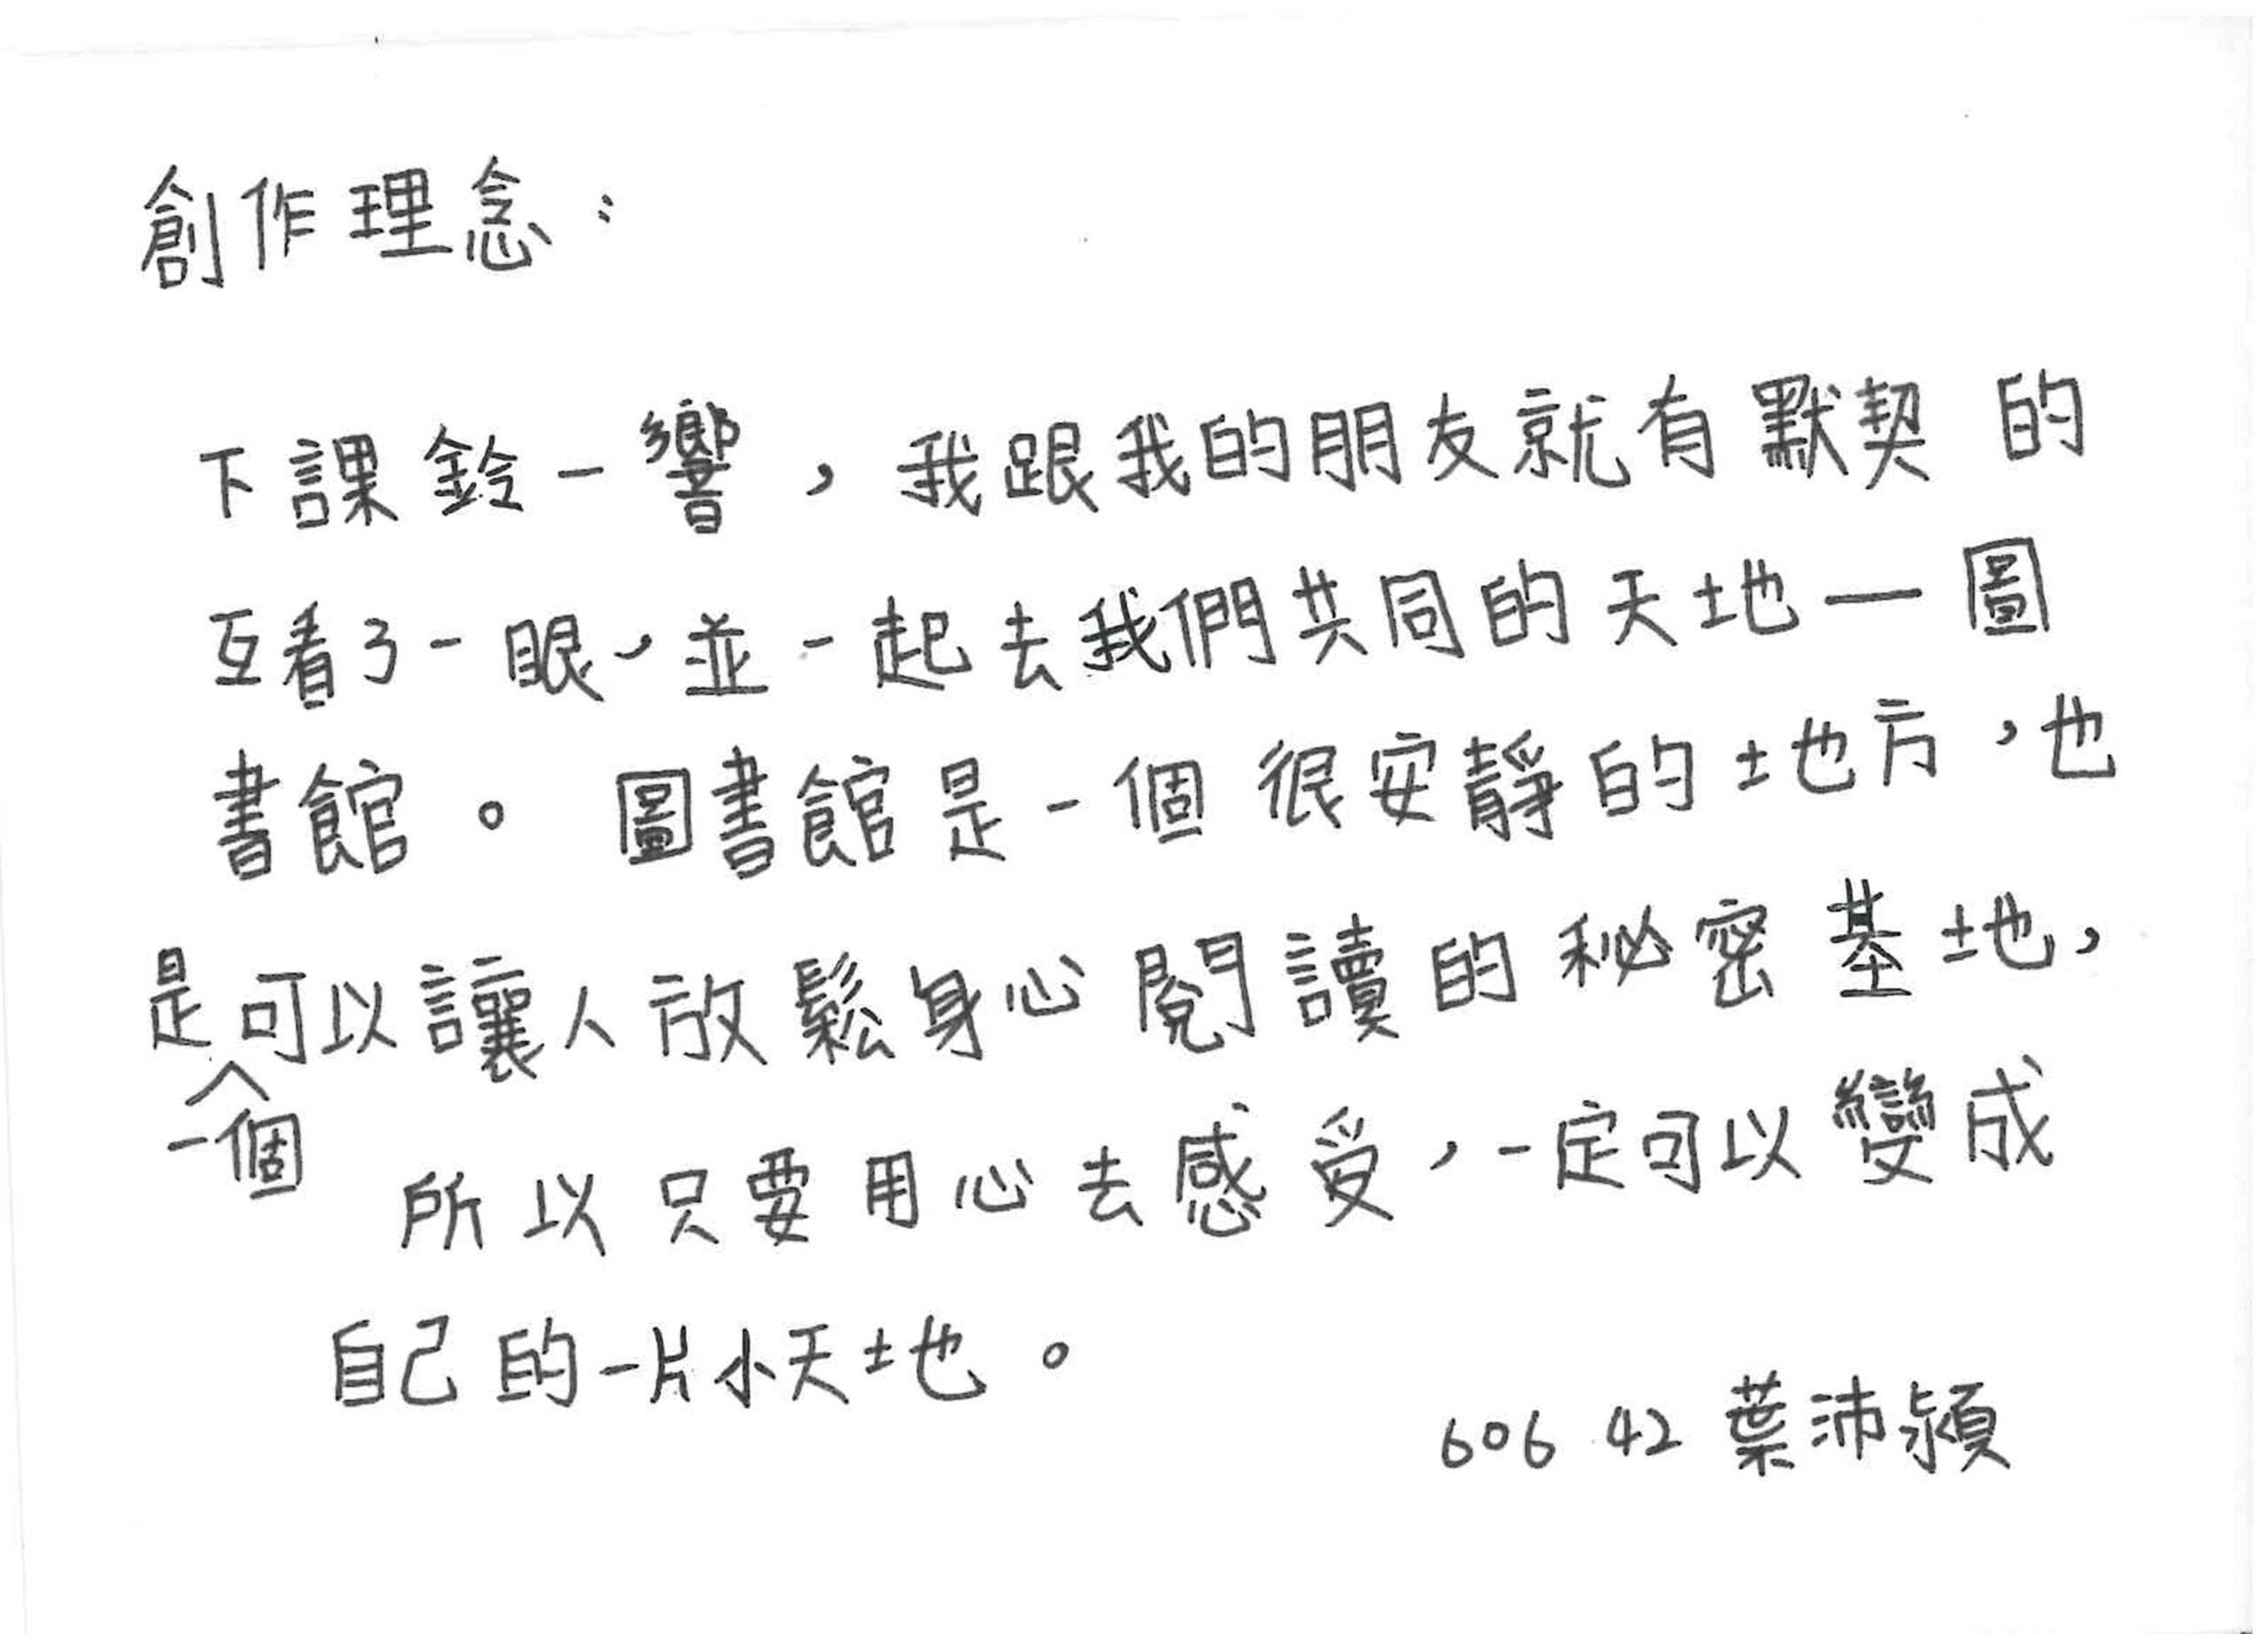 創作理念：
下課鈴一響，我跟我的朋友就有默契的
互看了一眼，並一起去我們共同的天地—圖
書館。圖書館是一個很安靜的地方，也
是可以讓人放鬆身心閱讀的秘密基地，
一個
所以只要用心去感受，一定可以變成
自己的一片小天地。
606 42 葉沛潁